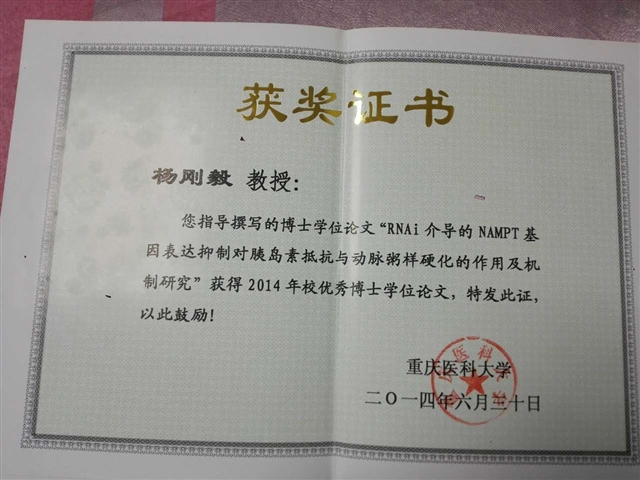 获奖证书
杨刚毅 教授：
您指导撰写的博士学位论文“RNAi 介导的 NAMPT 基
因表达抑制对胰岛素抵抗与动脉粥样硬化的作用及机
制研究”获得 2014 年校优秀博士学位论文，特发此证，
以此鼓励！
重庆医科大学
二〇一四年六月三十日